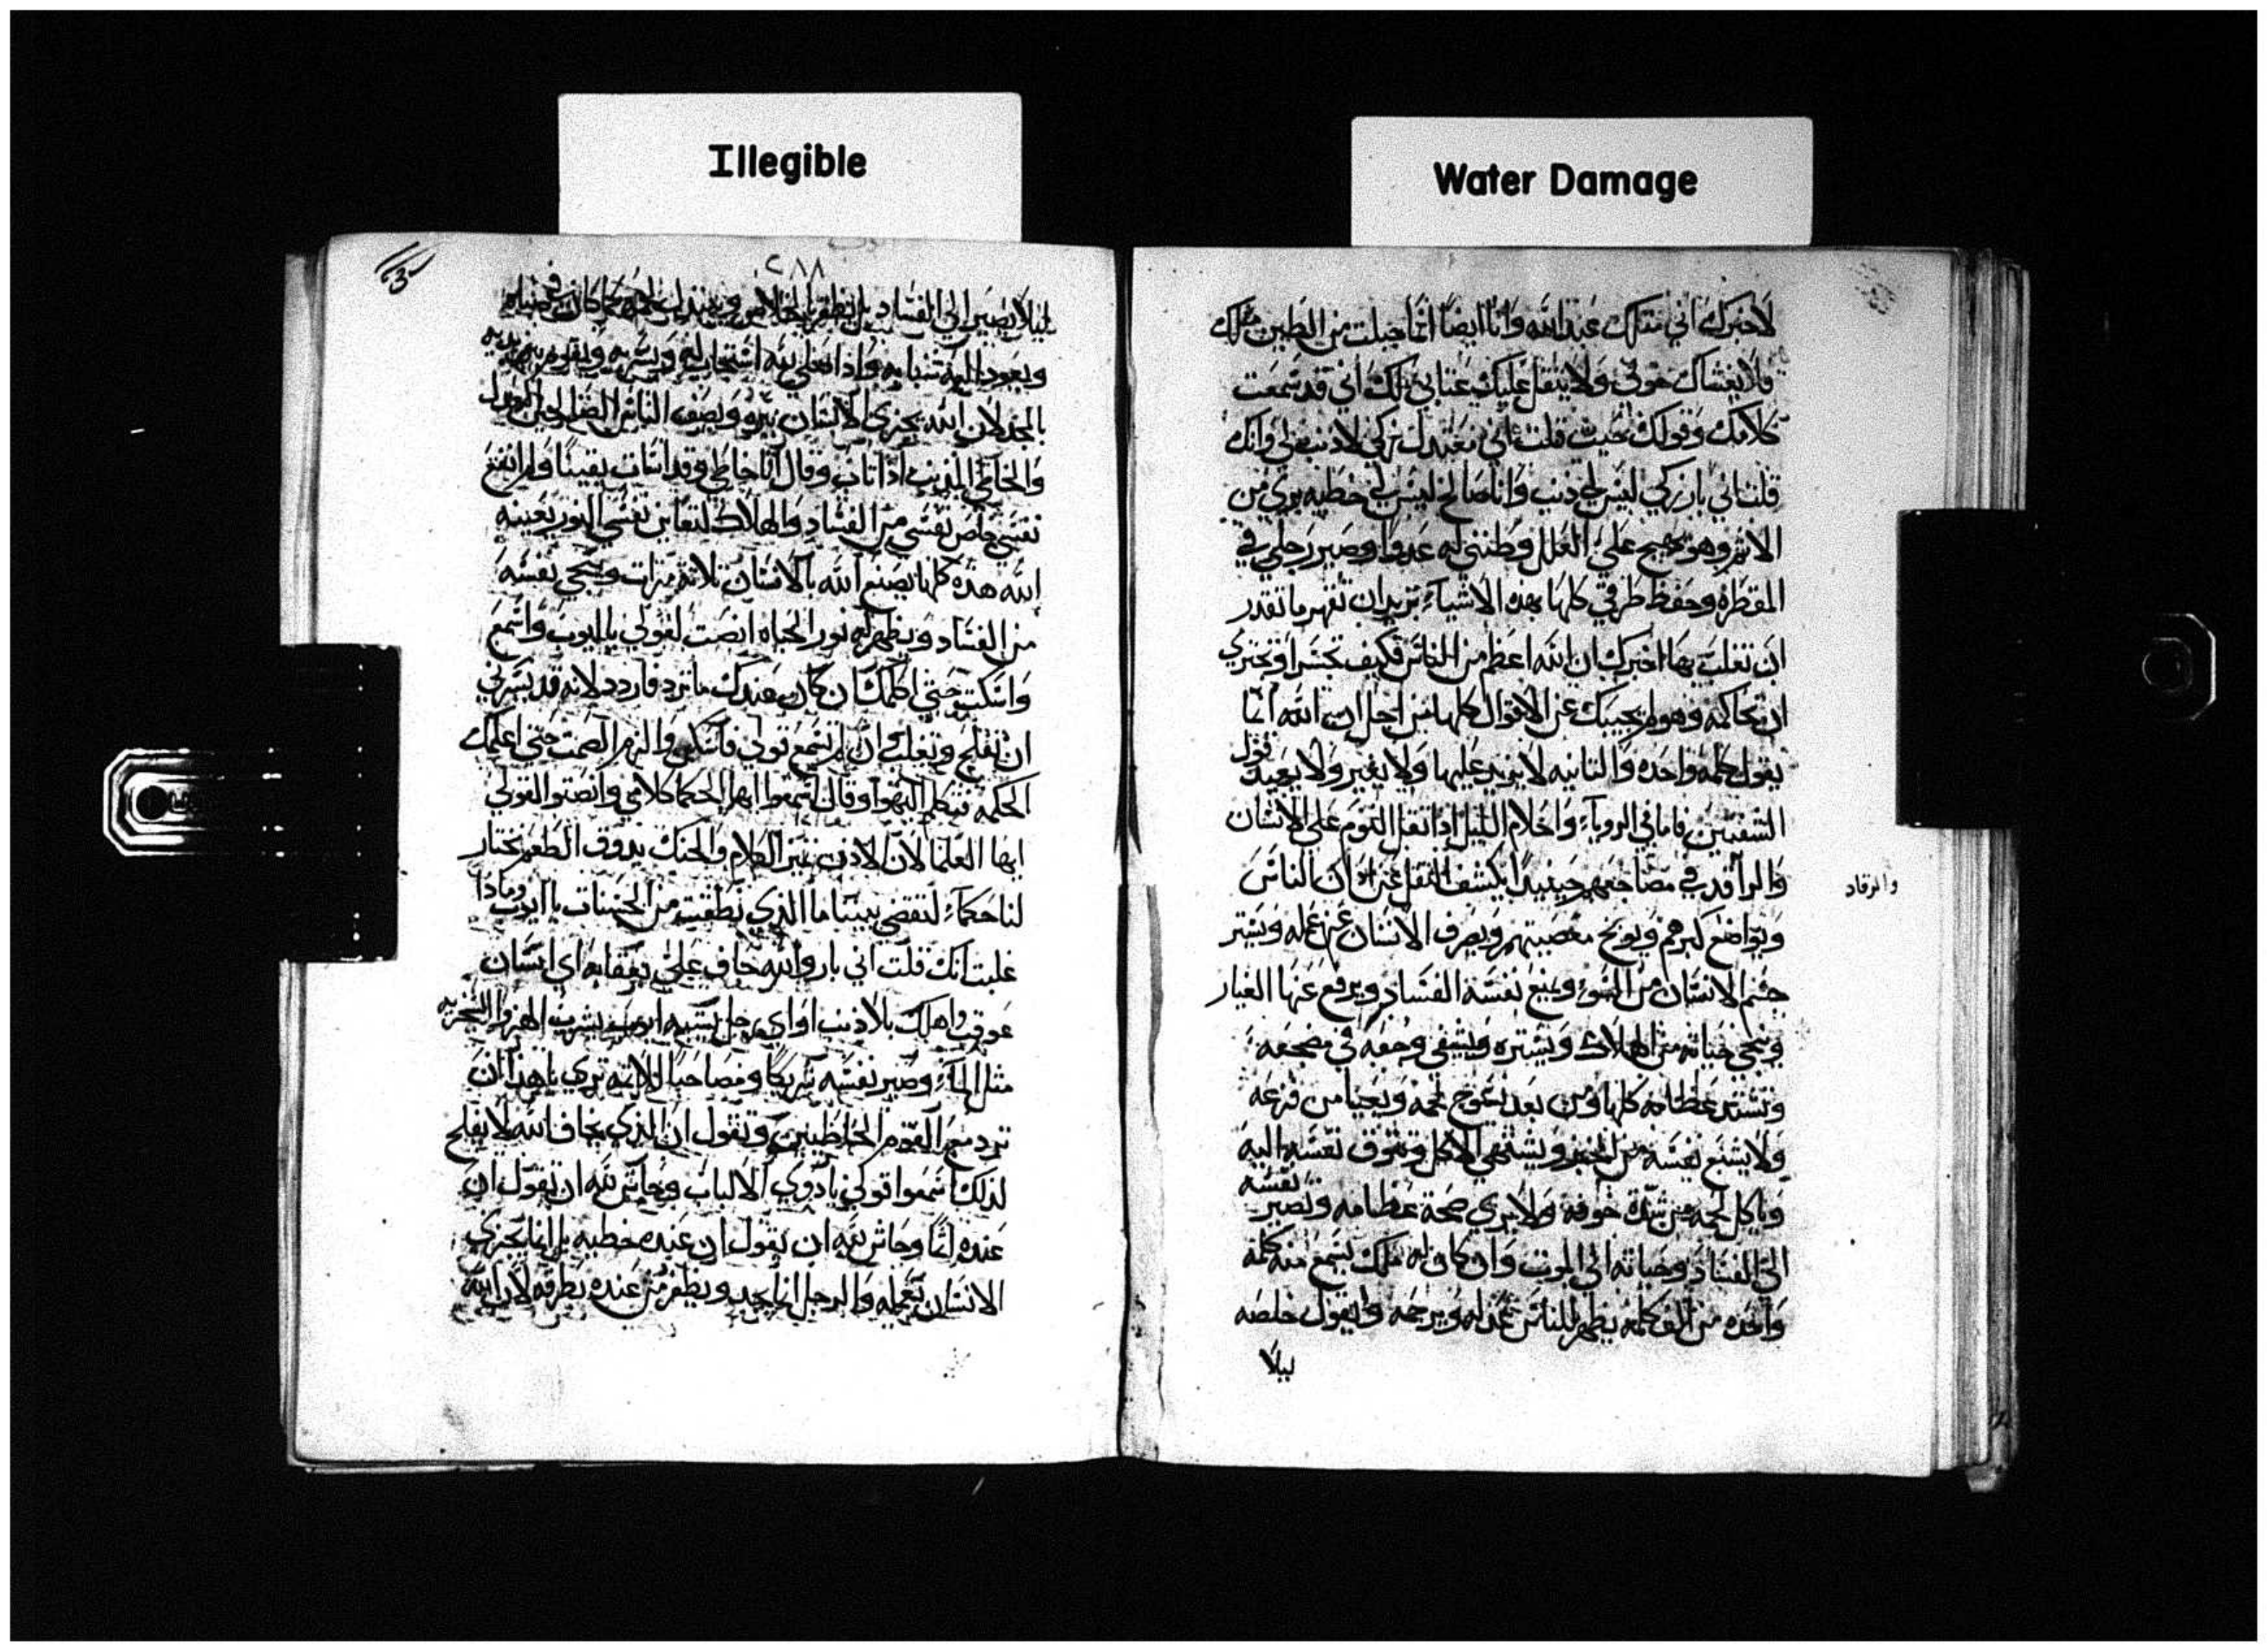 Illegible
Water Damage
لاخبرك اني مثلك عند الله وانا ايضا انما جبلت من الطين مثلك
فلا يغشاك خوفي ولا يثقل عليك عتابي لك اني قد سمعت
كلامك وقولك حيث قلت اني معتدل زكي لا ذنب لي وانك
قلت اني بار زكي ليس لي ذنب وانا صالح ليس لي خطيه بري من
الاثم وهو يهيج علي العلل وظنني له عدوا وصير رجلي في
المقطره وحفظ طرقي كلها بهذه الاشياء تريد ان تقهر ما تقدر
ان تغلب بها اخبرك ان الله اعظم من الناس فكيف تجسر او تجتري
ان تحاكمه وهو لم يجيبك عن الاقوال كلها من اجل ان الله انما
يقول كلمه واحده والثانيه لا يزيد عليها ولا يغير ولا يعيد قول
الشفتين فاما في الروياء واحلام الليل اذا ثقل النوم على الانسان
والراقد في مضاجعهم حينيد يكشف الثقل عن اذان الناس
والرقاد
ويواضع كبرهم ويوبخ معصيتهم ويصرف الانسان عن عمله ويستر
جسم الانسان من السوء ويمنع نفسه الفساد ويرفع عنها الغبار
وينجي حياته من الهلاك ويستره ويشفي وجعه في مضجعه
وتشتد عظامه كلها ومن بعد تعوج لحمه ويحيا من فزعه
ولا يشبع نفسه من الخبز ويشتهي الاكل وتتوق نفسه اليه
وياكل لحمه من شدة خوفه ولا يري صحة عظامه وتصير نفسه
الى الفساد وحياته الى الموت وان كان له ملك يسمع منه كلمه
واحده من الف كلمه يظهر للناس عدله ويرحمه ويقول خلصه
ليلا
٢٨٨
ليلا يصير الى الفساد بل يظفر بالخلاص ويتبدل لحمه كما كان في صباه
ويعود الى شبابه واذا صلي لله استجاب له
بالجدل لان الله يجزي الانسان ببره ويصف الناس
والخاطي المذنب اذا تاب وقال انا خاطي وقد اسات يقينا ولم انتفع
نفسي خلص نفسي من الفساد والهلاك لتعاين نفسي النور بعينه
الله هذه كلها يصنع الله بالانسان ثلاثة مرات وينجي نفسه
من الفساد ويظهر له نور الحياه انصت لقولي يا ايوب واسمع
واسكت حتى اكلمك ان كان عندك ما ترد فاردد لانه قد يسرني
ان تفلح وتغلب وان لم تسمع قولي فاسكت والزم الصمت حتى اعلمك
الحكمه فتكلم اليهوا وقال اسمعوا ايها الحكما كلامي وانصتوا لقولي
ايها العلما لان الاذن تميز الكلام والحنك يذوق الطعم نختار
لنا حكماء لنقضي بيننا ما الذي نطقت من الحسنات يا ايوب وماذا
غلبت انك قلت اني بار والله حاف علي اي انسان
عوقب واهلك بلا ذنب او اي رجل يشبه ايوب يشرب الهزو والسخريه
مثل الماء وصير نفسه شريكا ومصاحبا للاثمه تري يا هذا ان
ترد مع القوم الخاطيين وتقول ان الذي يخاف الله لا يفلح
لذلك اسمعوا قولي يا ذوي الالباب وحاش لله ان تقول ان
عنده اثما وحاش لله ان يقول ان عنده خطيه بل انما يجزي
الانسان بعمله والرجل انما يجد ويظفر من عنده بطرقه لان الله